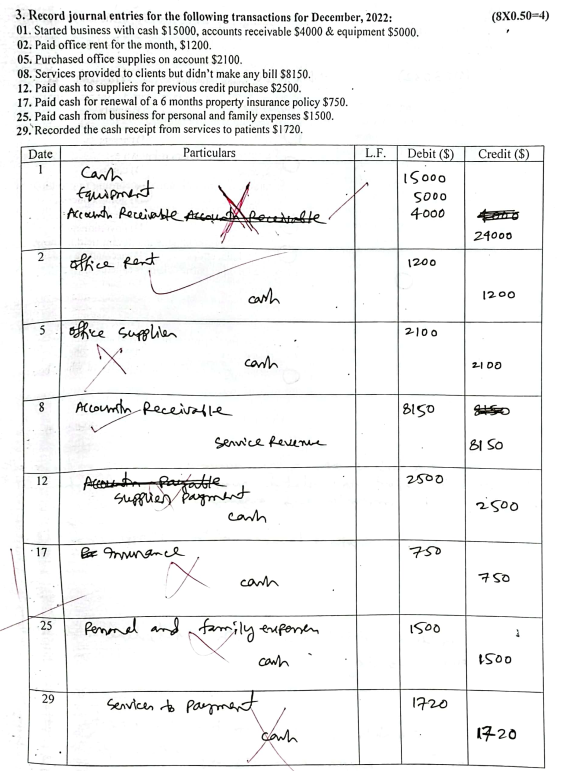 3. Record journal entries for the following transactions for December, 2022: (8X0.50=4)
01. Started business with cash $15000, accounts receivable $4000 & equipment $5000.
02. Paid office rent for the month, $1200.
05. Purchased office supplies on account $2100.
08. Services provided to clients but didn't make any bill $8150.
12. Paid cash to suppliers for previous credit purchase $2500.
17. Paid cash for renewal of a 6 months property insurance policy $750.
25. Paid cash from business for personal and family expenses $1500.
29. Recorded the cash receipt from services to patients $1720.
Date Particulars L.F. Debit ($) Credit ($)
1 Cash 15000
Equipment 5000
Accounts Receivable Accounts Receivable 4000 4000
24000
2 office Rent 1200
cash 1200
5 office supplies 2100
cash 2100
8 Accounts Receivable 8150 8150
Service Revenue 8150
12 Accounts Payable 2500
Supplies Payment 2500
cash
17 Insurance 750
cash 750
25 Personal and family expenses 1500
cash 1500
29 Services to payment 1720
cash 1720